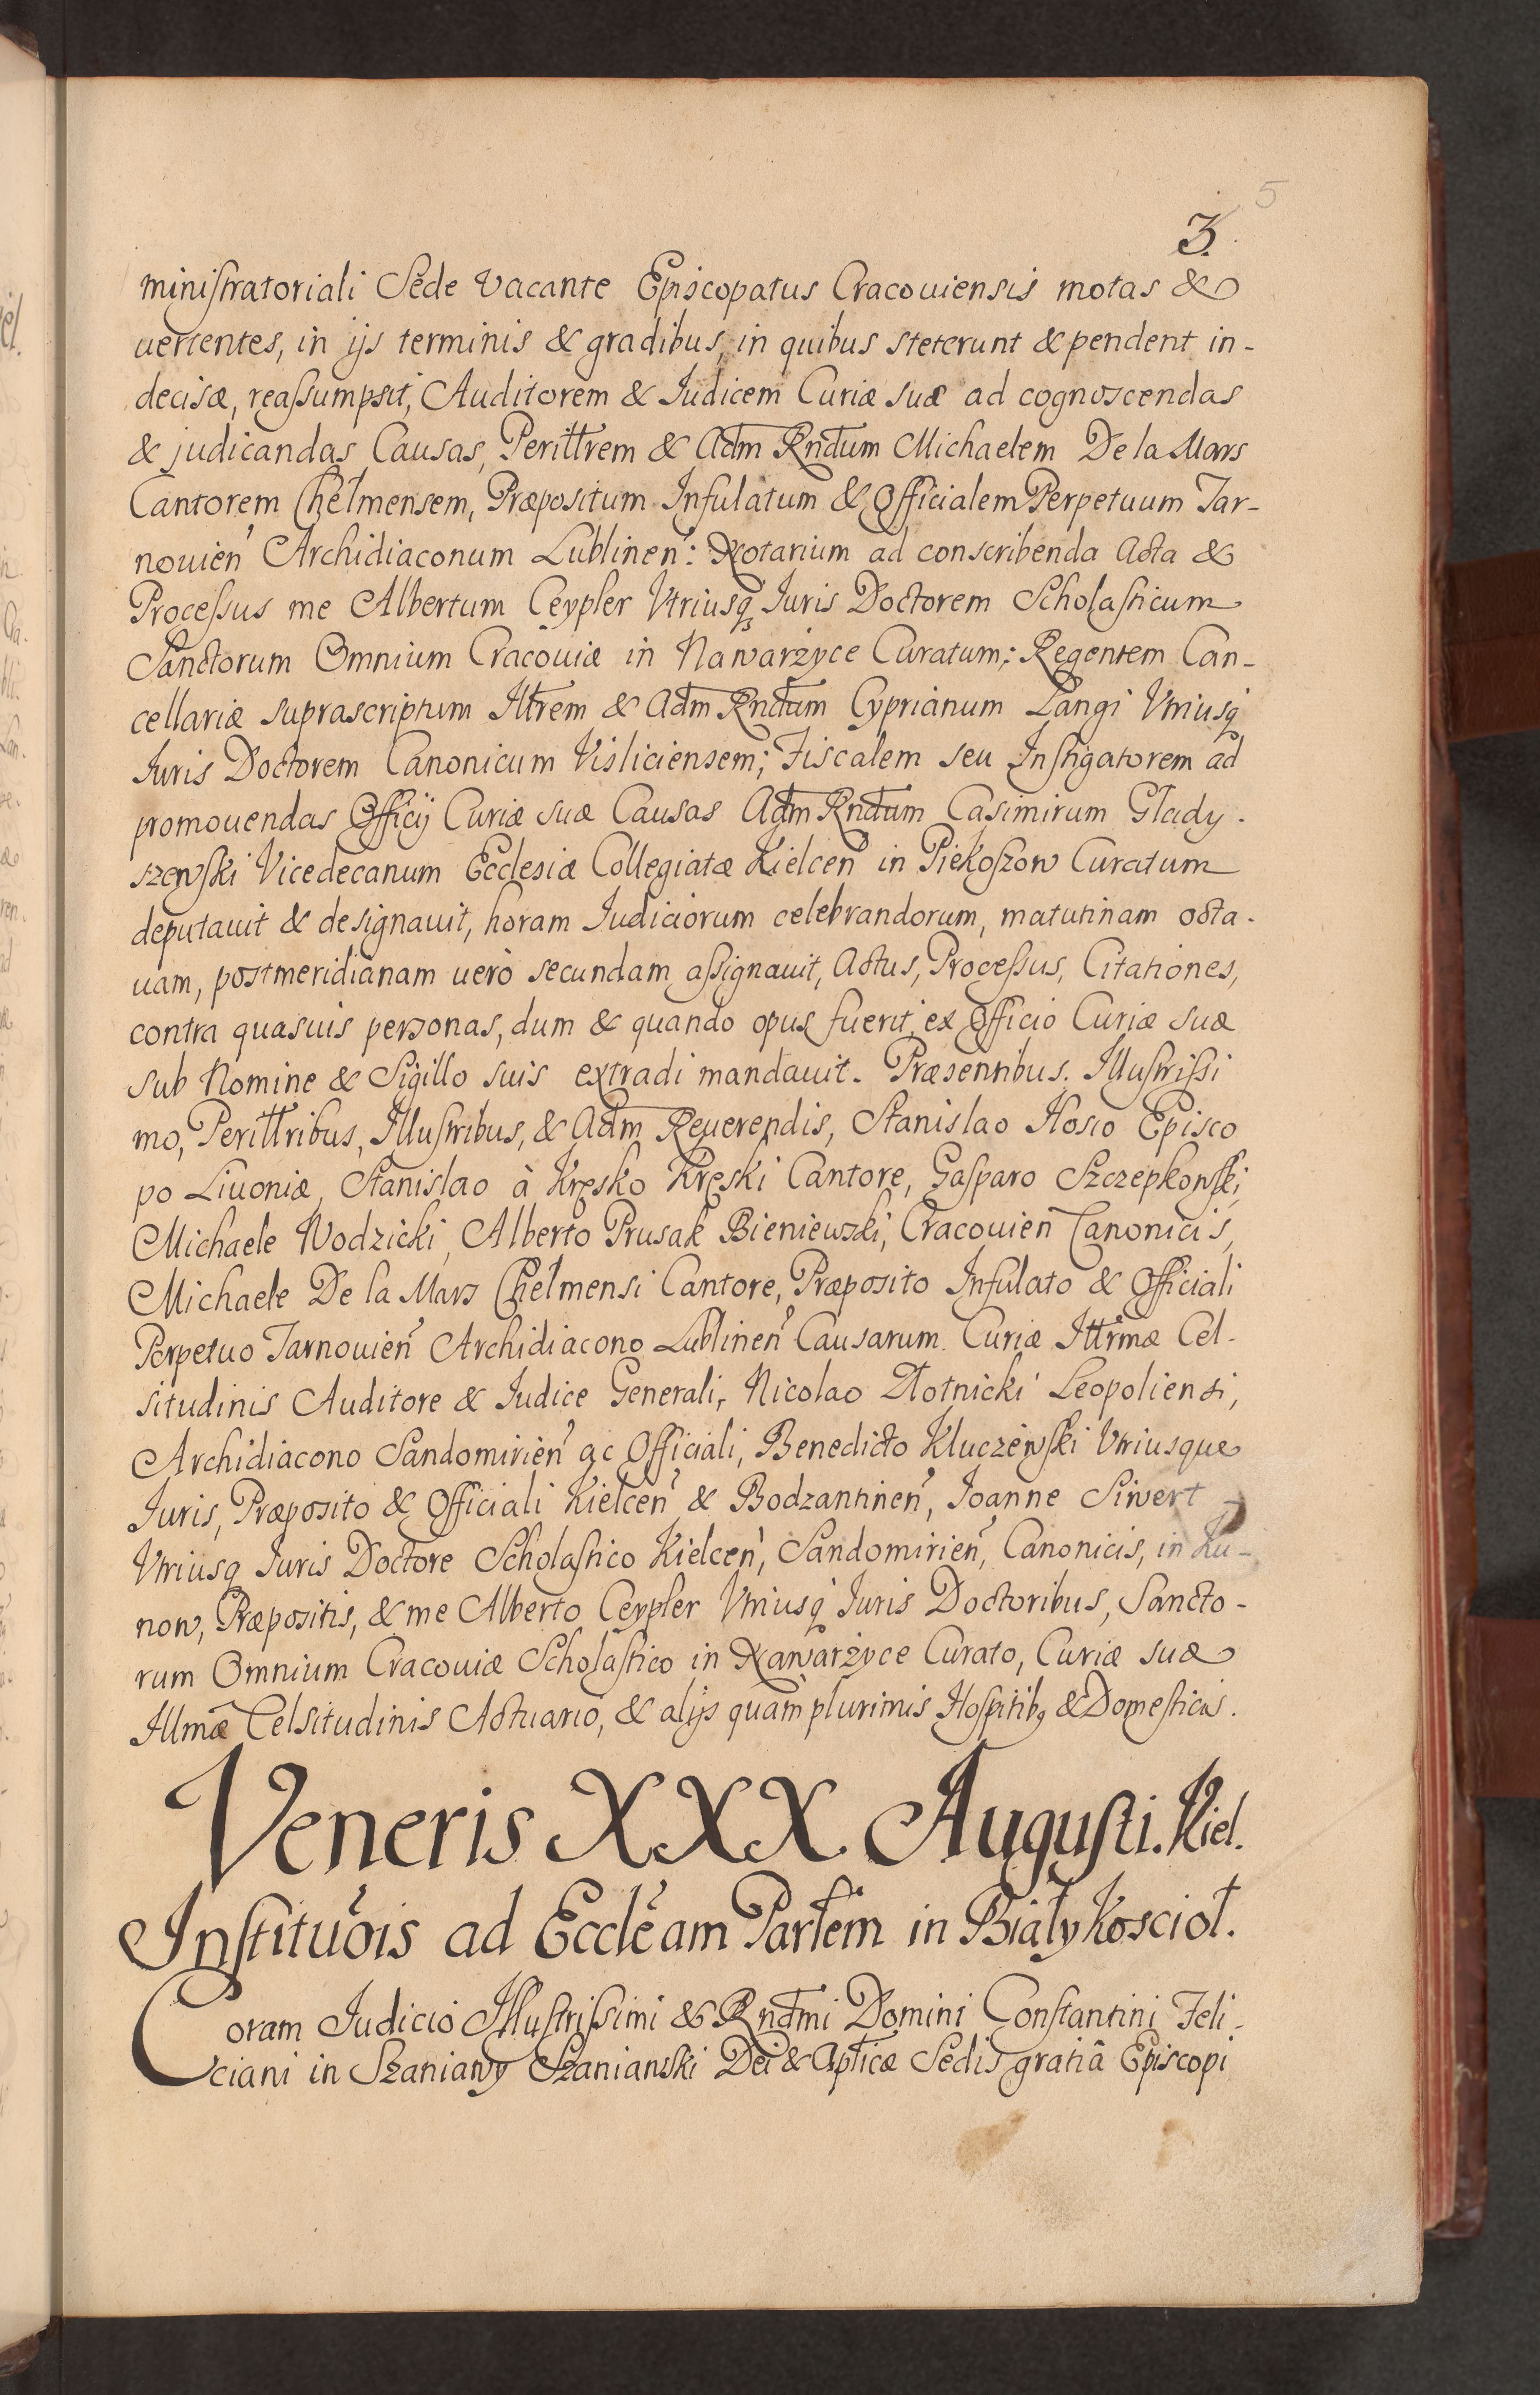 5
3.
ministratoriali Sede vacante Episcopatus Cracouiensis motas &
uertentes, in ijs terminis & gradibus, in quibus steterunt & pendent in-
decisæ, reassumpsit, Auditorem & Iudicem Curiæ suæ ad cognoscendas
& judicandas Causas, Perilltrem & Adm Rndum Michaelem De la Mars
Cantorem Chelmensem, Præpositum Infulatum & Officialem Perpetuum Tar-
nouien Archidiaconum Lublinen: Notarium ad conscribenda Acta &
Processus me Albertum Ceypler Vtriusq Iuris Doctorem Scholasticum
Sanctorum Omnium Cracouiæ in Nawarżyce Curatum: Regentem Can-
cellariæ suprascriptum Illtrem & Adm Rndum Cyprianum Langi Vtriusq
Iuris Doctorem Canonicum Visliciensem; Fiscalem seu Instigatorem ad
promouendas Officij Curiæ suæ Causas Adm Rndum Casimirum Glady-
szewski Vicedecanum Ecclesiæ Collegiatæ Kielcen in Piekoszow Curatum
deputauit & designauit, horam Iudiciorum celebrandorum, matutinam octa-
uam, postmeridianam uerò secundam assignauit, Actus, Processus, Citationes,
contra quasuis personas, dum & quando opus fuerit, ex Officio Curiæ suæ
sub Nomine & Sigillo suis extradi mandauit. Præsentibus. Illustrissi
mo, Perilltribus, Illustribus, & Adm Reuerendis, Stanislao Hosio Episco
po Liuoniæ, Stanislao à Kręsko Kręski Cantore, Gasparo Szczepkowski,
Michaele Wodzicki, Alberto Prusak Bieniewski, Cracouien Canonicis,
Michaele De la Mars Chelmensi Cantore, Præposito Infulato & Officiali
Perpetuo Tarnouien Archidiacono Lublinen Causarum Curiæ Illtrmæ Cel-
situdinis Auditore & Iudice Generali, Nicolao Złotnicki Leopoliensi,
Archidiacono Sandomirien ac Officiali, Benedicto Kluczewski Vtriusque
Iuris, Præposito & Officiali Kielcen & Bodzantinen, Ioanne Siwert
Vtriusq Iuris Doctore Scholastico Kielcen, Sandomirien, Canonicis, in Ku-
now, Præpositis, & me Alberto Ceypler Vtriusq Iuris Doctoribus, Sancto-
rum Omnium Cracouiæ Scholastico in Nawarżyce Curato, Curiæ suæ
Illmæ Celsitudinis Actuario, & alijs quàm plurimis Hospitibq & Domesticis.
Veneris XXX Augusti. Kiel.
Institutois ad Eccleam Parlem in Biały Koscioł.
Coram Iudicio Illustrissimi & Rndmi Domini Constantini Feli-
ciani in Szaniawy Szaniawski Dei & Aplicæ Sedis gratiâ Episcopi